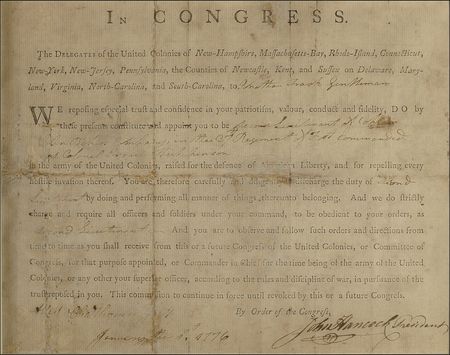 IN CONGRESS.
The DELEGATES of the United Colonies of New-Hampshire, Massachusetts-Bay, Rhode-Island, Connecticut,
New-York, New-Jersey, Pennsylvania, the Counties of Newcastle, Kent, and Sussex on Delaware, Mary-
land, Virginia, North-Carolina, and South-Carolina, to Gentleman
WE reposing especial trust and confidence in your patriotism, valour, conduct and fidelity, DO by
these presents constitute and appoint you to be Second Lieutenant of
commanded
in the army of the United Colonies, raised for the defence of American Liberty, and for repelling every
hostile invasion thereof. You are, therefore carefully and diligently to discharge the duty of Second
Lieutenant by doing and performing all manner of things thereunto belonging. And we do strictly
charge and require all officers and soldiers under your command, to be obedient to your orders, as
Second Lieutenant And you are to observe and follow such orders and directions from
time to time as you shall receive from this or a future Congress of the United Colonies, or Committee of
Congress, for that purpose appointed, or Commander in Chief for the time being of the army of the United
Colonies, or any other your superior officer, according to the rules and discipline of war, in pursuance of
the trust reposed in you. This commission to continue in force until revoked by this or a future Congress.
By Order of the Congress,
John Hancock President
1776